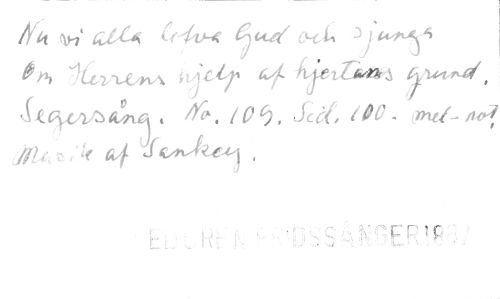 Nu vi alla lofva Gud och sjunga
Om Herrens hjelp af hjertans grund.
Segersång. No. 109. Sid. 100. mel-not.
Musik af Sankey.
EDGREN FRIDSSÅNGER 1887